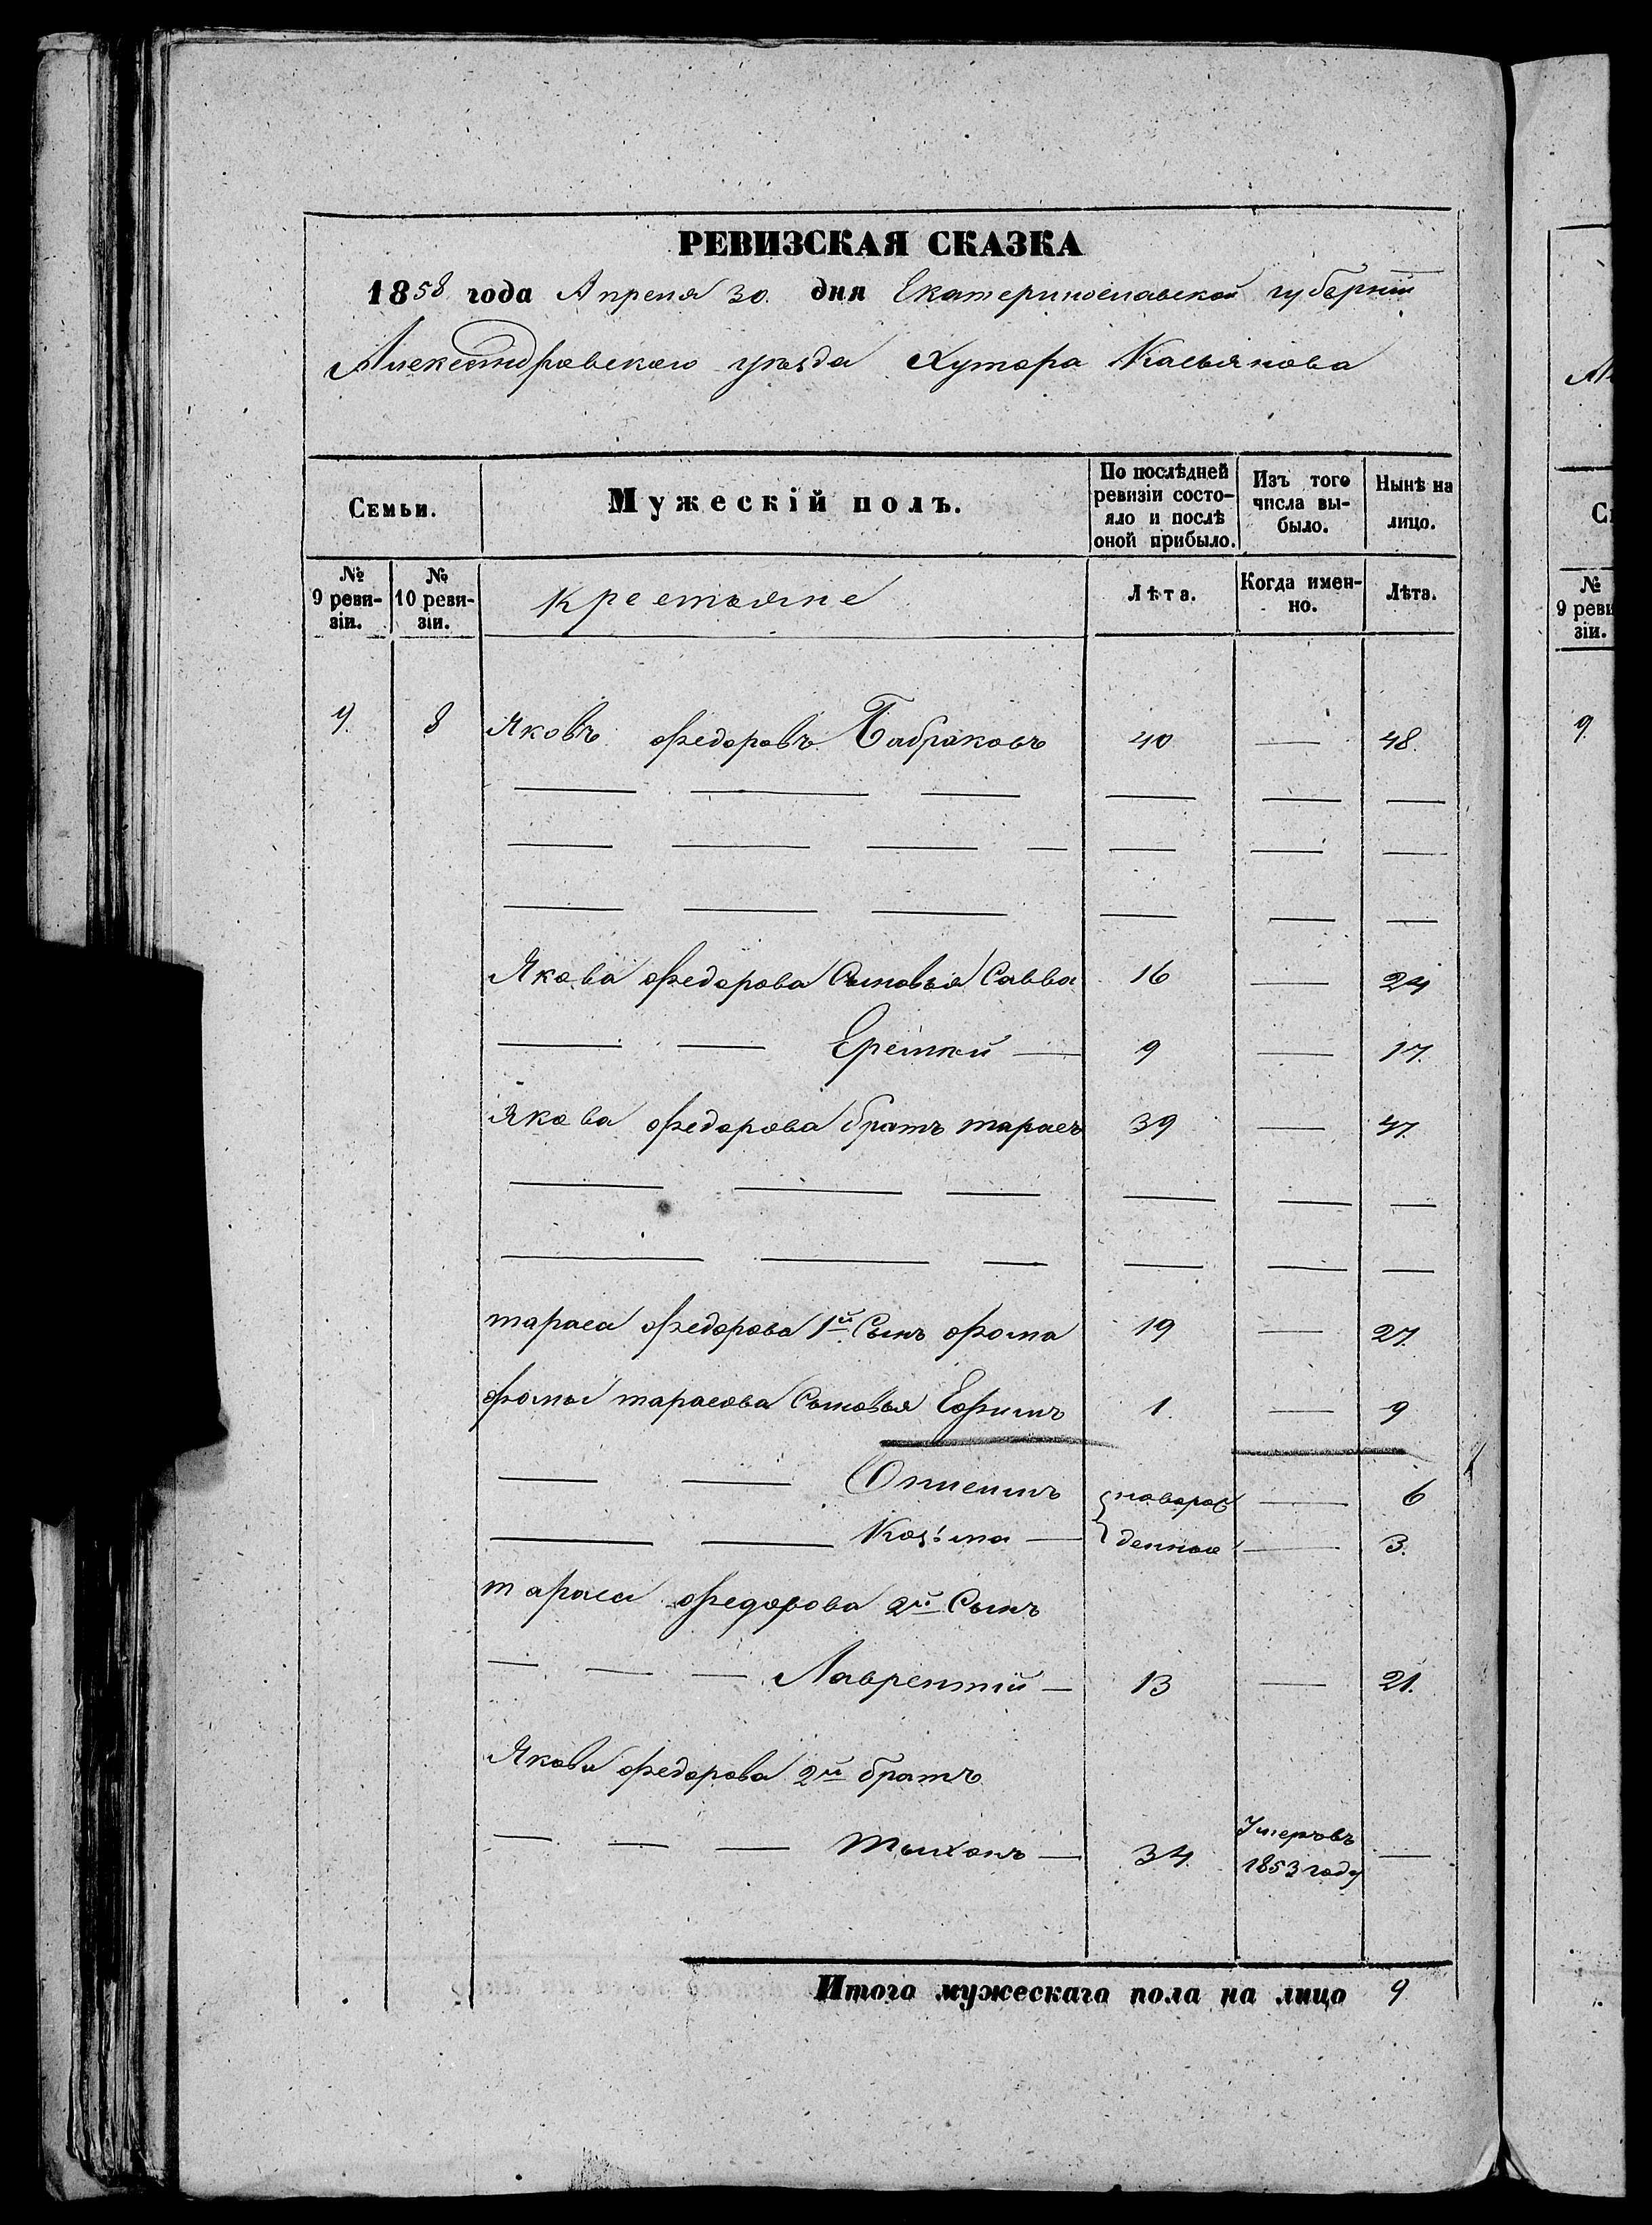 РЕВИЗСКАЯ СКАЗКА
1858 года Апреля 30. дня Екатеринославской губернии
Александровского уезда Хутора Касьянова
Семьи. Мужескій полъ. По послѣдней ревизіи состояло и послѣ оной прибыло. Изъ того числа выбыло. Нынѣ на лицо.
№ 9 ревизіи. № 10 ревизіи. Крестьяне Лѣта. Когда именно. Лѣта.
9. 8 Яковъ Федоровъ Бабраковъ 40 — 48.
Якова Федорова Сыновья Савва 16 — 24
— — — 9 — 17.
Якова Федорова братъ Тарасъ 39 — 47.
Тараса Федорова 1й Сынъ Фома 19 — 27.
Фомы Тарасова Сыновья Ефимъ 1. — 9
— — Онисимъ новорож — 6
— — Козьма — денные — 3.
Тараса Федорова 2й Сынъ
— — — Лаврентий — 13 — 21.
Якова Федорова 2й братъ
— — — Тихонъ — 34. Умеръ въ 1853 году —
Итого мужескаго пола на лицо 9
№ 9 ревизіи.
9.